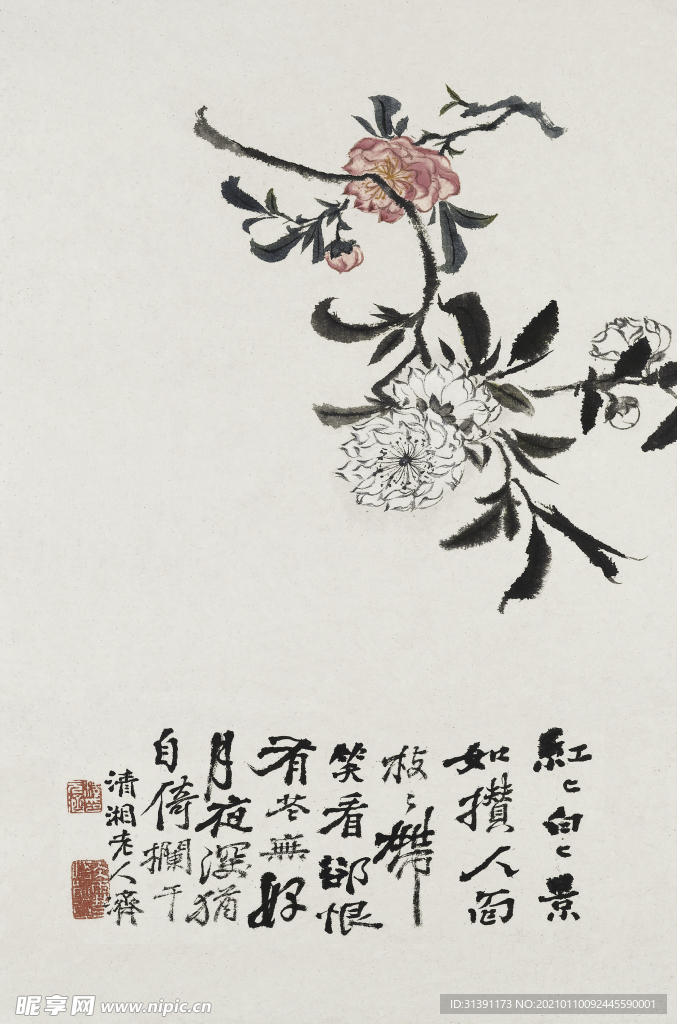 紅〻白〻景
如攢人面
枝〻帶
笑看卻恨
有花無好
月夜深猶
自倚欄干
清湘老人濟
昵享网 www.nipic.cn
ID:31391173 NO:20210110092445590001